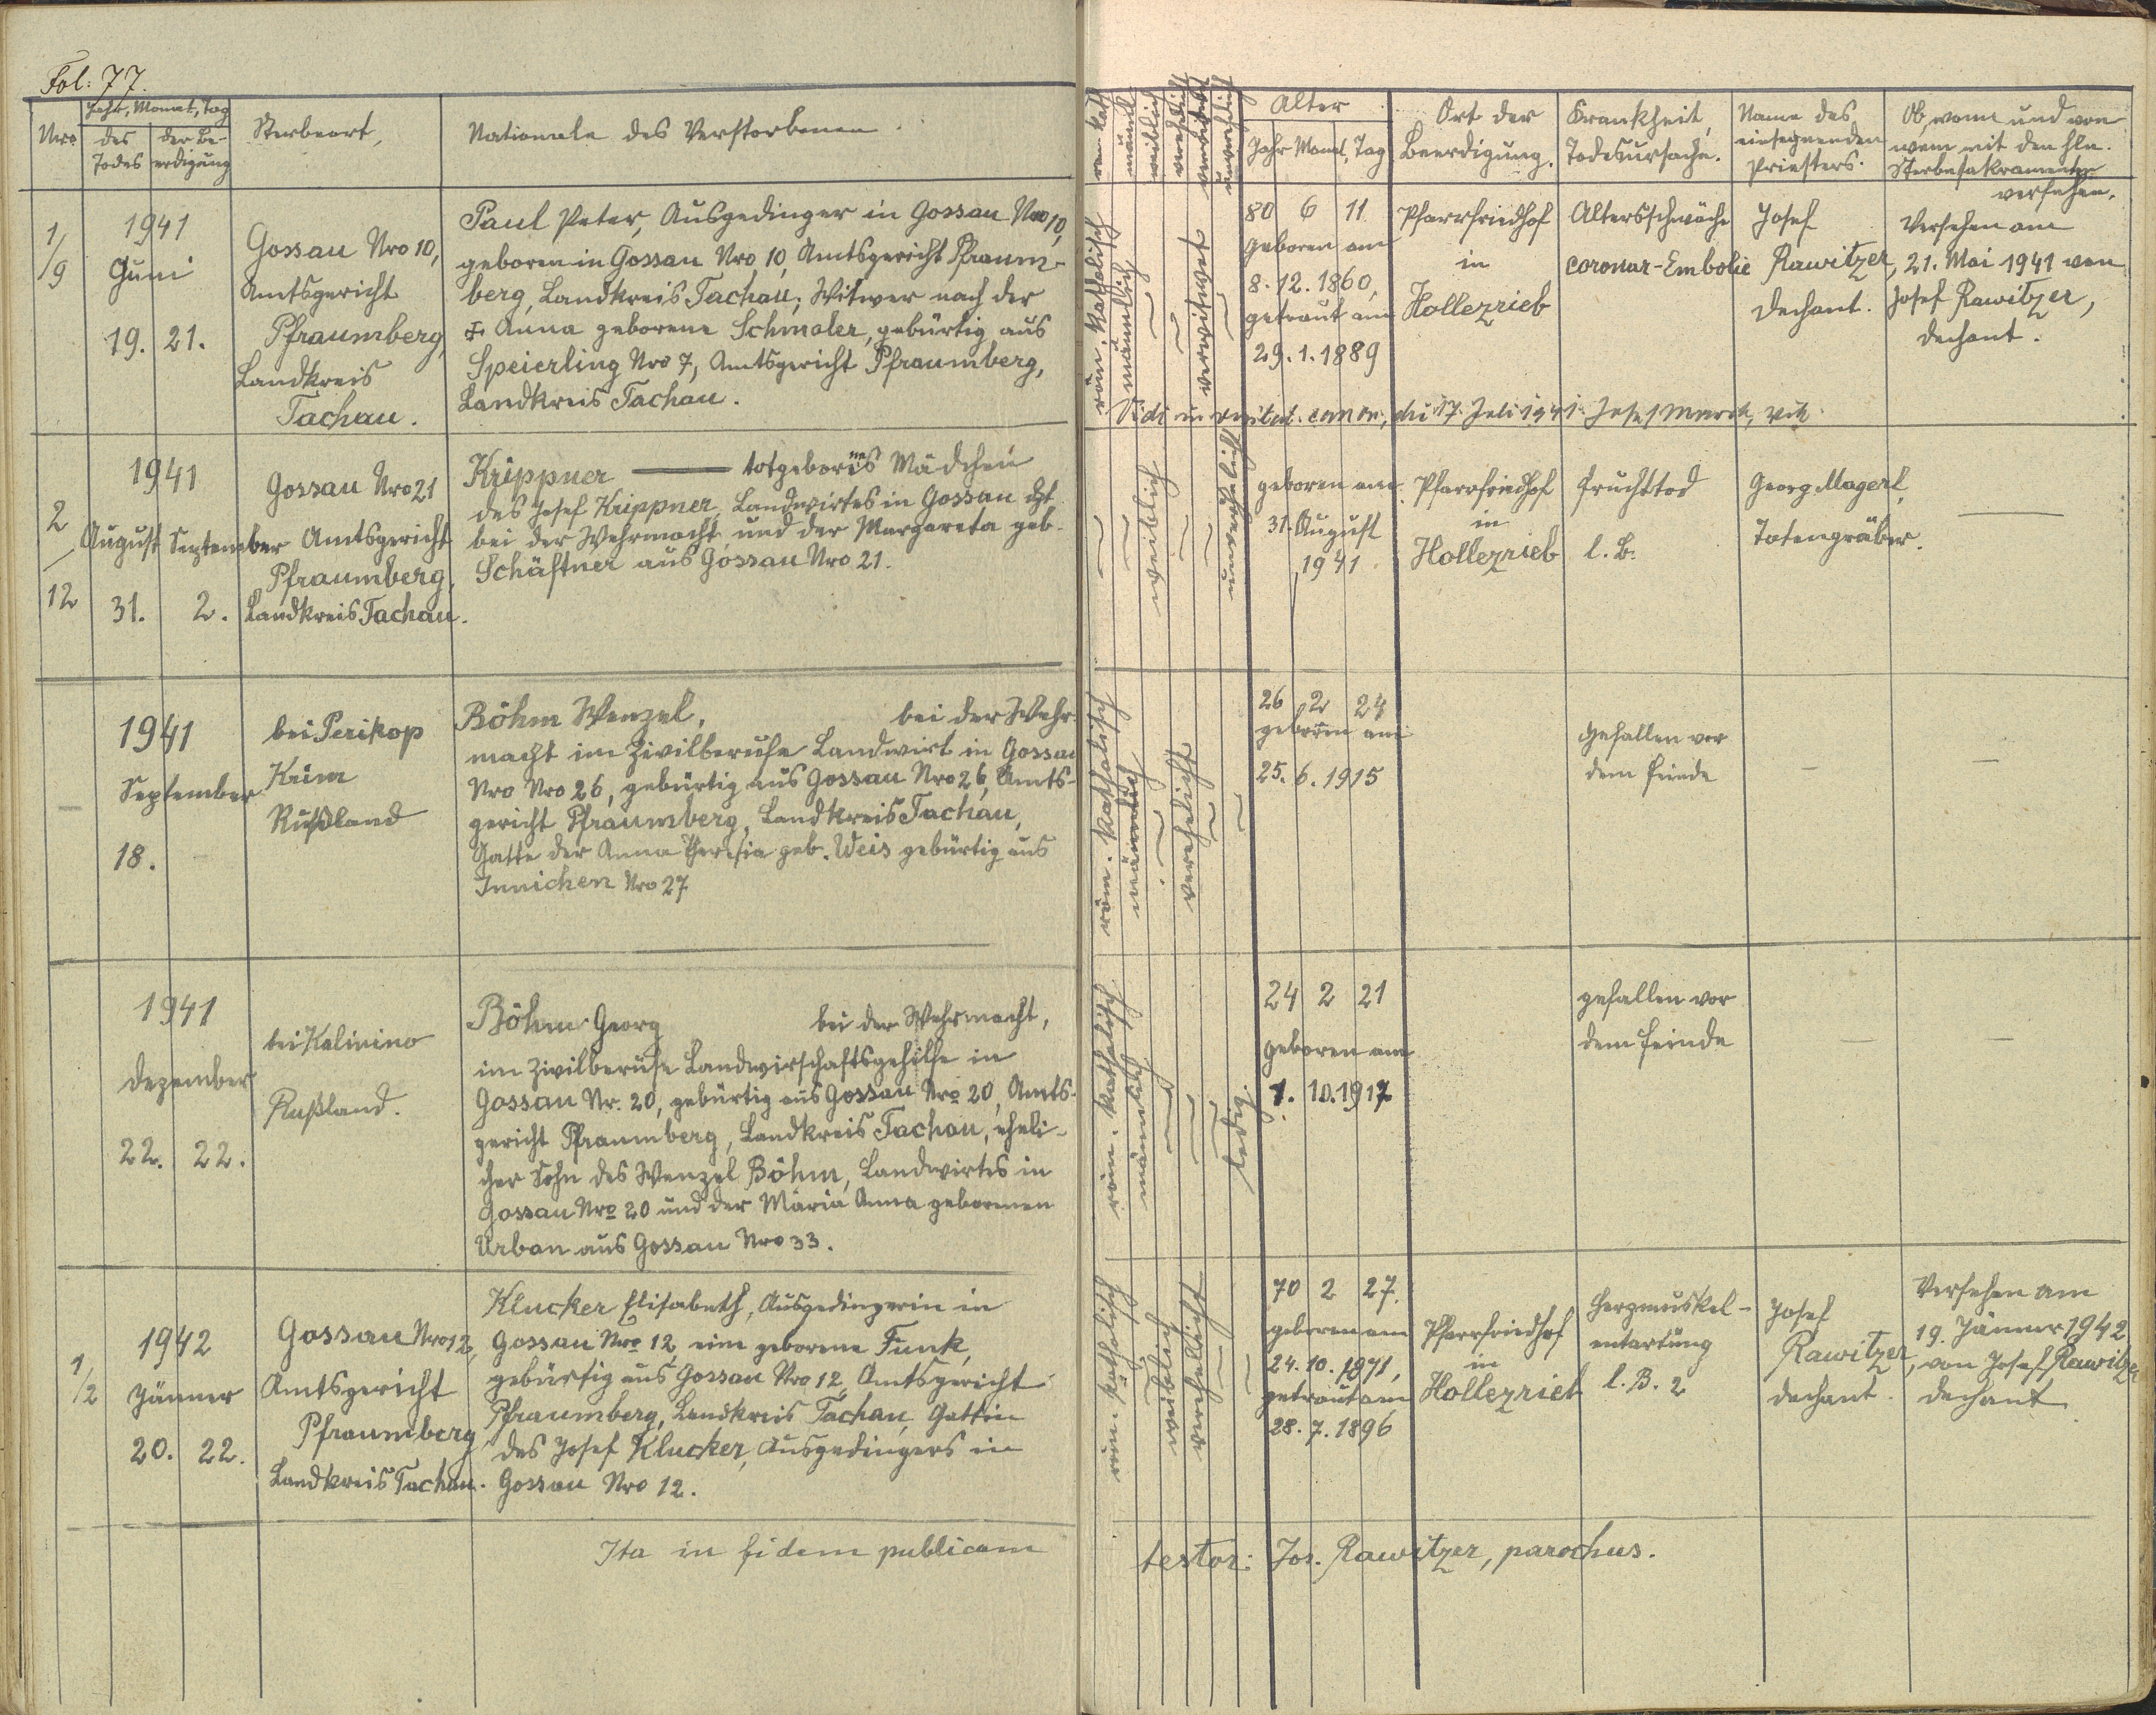 Fol: 77.
Nro
Jahr, Monat, Tag
des Todes
der Be-
erdigung
Sterbeort,
Nationale des Verstorbenen.
röm. kath
männl
weiblich
verehelicht
verwitwet
unverehelicht
Alter
Jahr Monat, Tag
Ort der
Beerdigung.
Krankheit,
Todesursache.
Name des
einsegnenden
Priesters.
Ob, wann und von
wem mit den hln.
Sterbesakramenten
versehen.
1/9
1941
Juni
19. 21.
Gossau Nro 10,
Amtsgericht
Pfraumberg,
Landkreis
Tachau.
Paul Peter, Ausgedinger in Gossau Nro 10,
geboren in Gossau Nro 10, Amtsgericht Pfraum-
berg, Landkreis Tachau; Witwer nach der
‡ Anna geborene Schmaler, gebürtig aus
Speierling Nro 7, Amtsgericht Pfraumberg,
Landkreis Tachau.
röm. katholisch
männlich
verwitwet
80 6 11
geboren am
8. 12. 1860,
getraut am
29. 1. 1889
Pfarrfriedhof
in
Hollezrieb
Altersschwäche
coronar-Embolie
Josef
Rawitzer,
Dechant.
Versehen am
21. Mai 1941 von
Josef Rawitzer,
Dechant.
Vidi in visitat. canon., die 17. Juli 1941
2/12
1941
August September
31. 2.
Gossau Nro 21
Amtsgericht
Pfraumberg,
Landkreis Tachau.
Krippner —— totgeborenes Mädchen
des Josef Krippner, Landwirtes in Gossau dzt
bei der Wehrmacht und der Margareta geb.
Schäftner aus Gossau Nro 21.
weiblich
unverehelicht
geboren am
31. August
1941
Pfarrfriedhof
in
Hollezrieb
Fruchttod
l. B.
Georg Magerl,
Totengräber.
—
1941
September
18.
bei Perikop
Krim
Rußland
Böhm Wenzel, bei der Wehr-
macht im Zivilberufe Landwirt in Gossau
Nro Nro 26, gebürtig aus Gossau Nro 26, Amts-
gericht Pfraumberg, Landkreis Tachau,
Gatte der Anna Theresia geb. Weis gebürtig aus
Innichen Nro 27
röm. katholisch
männlich
verehelicht
26 2 24
geboren am
25. 6. 1915
gefallen vor
dem Feinde
—
—
1941
Dezember
22. 22.
bei Kalinino
Rußland.
Böhm Georg bei der Wehrmacht,
im Zivilberufe Landwirschaftsgehilfe in
Gossau Nr. 20, gebürtig aus Gossau Nro 20, Amts-
gericht Pfraumberg, Landkreis Tachau, eheli-
cher Sohn des Wenzel Böhm, Landwirtes in
Gossau Nro 20 und der Maria Anna geborenen
Urban aus Gossau Nro 33.
röm. katholisch
männlich
ledig
24 2 21
geboren am
1. 10. 1917
gefallen vor
dem Feinde
—
—
1/2
1942
Jänner
20. 22.
Gossau Nro 12,
Amtsgericht
Pfraumberg
Landkreis Tachau.
Klucker Elisabeth, Ausgedingerin in
Gossau Nro 12, eine geborene Funk,
gebürtig aus Gossau Nro 12, Amtsgericht
Pfraumberg, Landkreis Tachau, Gattin
des Josef Klucker, Ausgedingers in
Gossau Nro 12.
röm katholisch
weiblich
verehelicht
70 2 27.
geboren am
24. 10. 1871,
getraut am
28. 7. 1896
Pfarrfriedhof
in
Hollezrieb
Herzmuskel-
entartung
l. B. 2
Josef
Rawitzer,
Dechant.
Versehen am
19. Jänner 1942
von Josef Rawitzer
Dechant
Ita in fidem publicam
testor: Jos. Rawitzer, parochus.